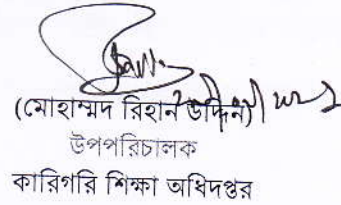 (মোহাম্মদ রিহান উদ্দিন)
উপপরিচালক
কারিগরি শিক্ষা অধিদপ্তর